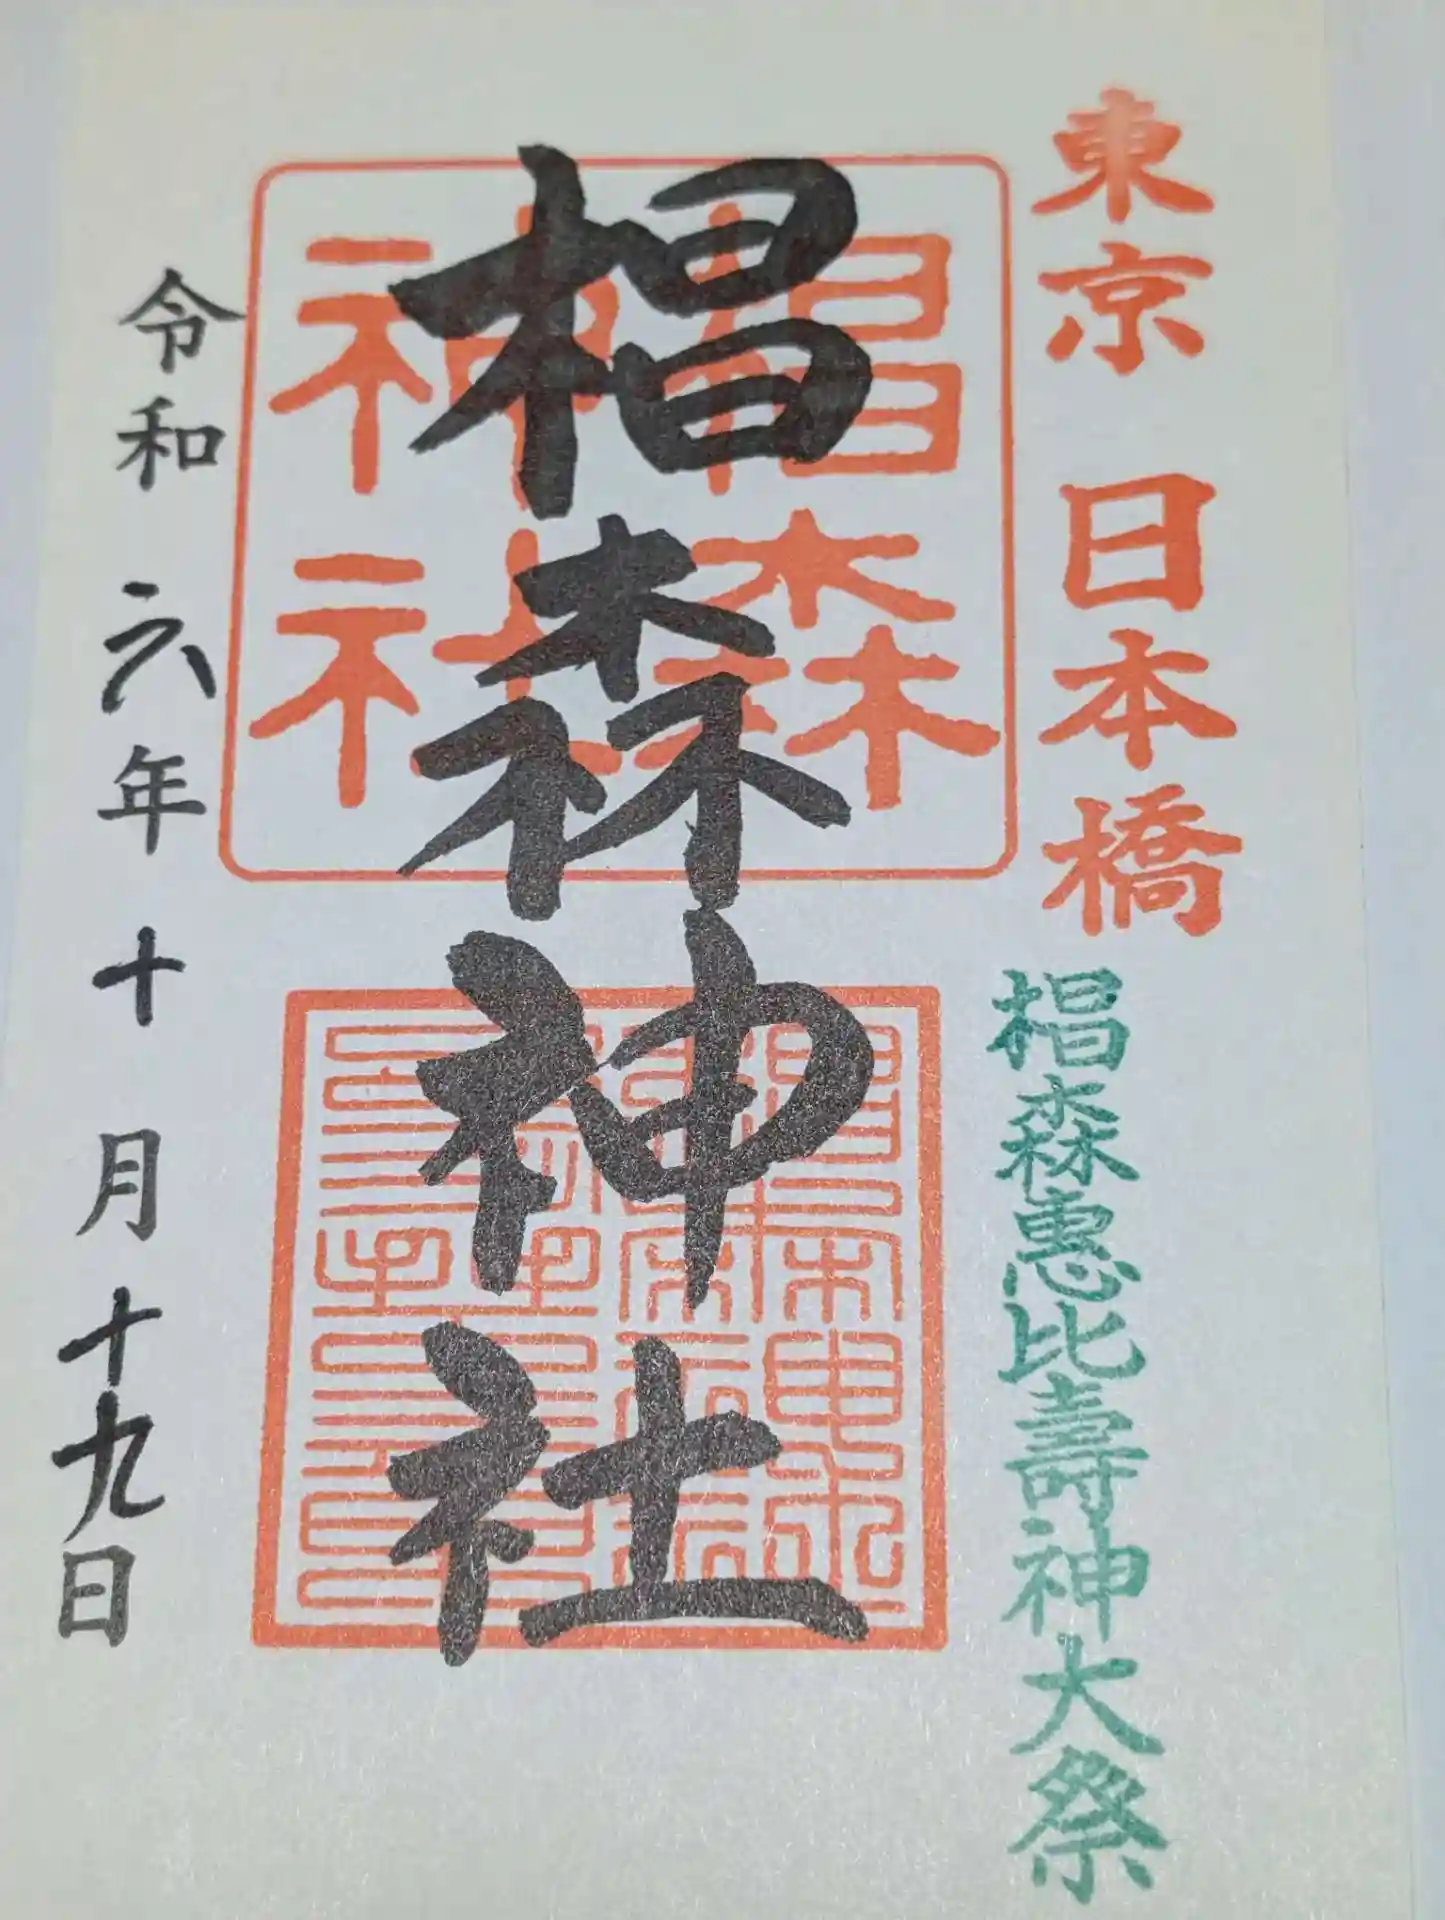 東京 日本橋
椙森惠比壽神大祭
椙森神社
椙森
神社
令和六年十月十九日